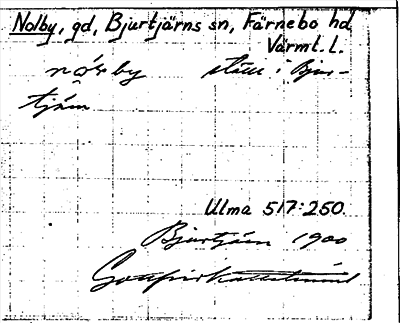 Nolby, gd, Bjurtjärns sn, Färnebo hd
Värml. l.
ställe i Bjur-
tjärn
Ulma 517:250.
Bjurtjärn 1900
Gottfrid Kallstenius